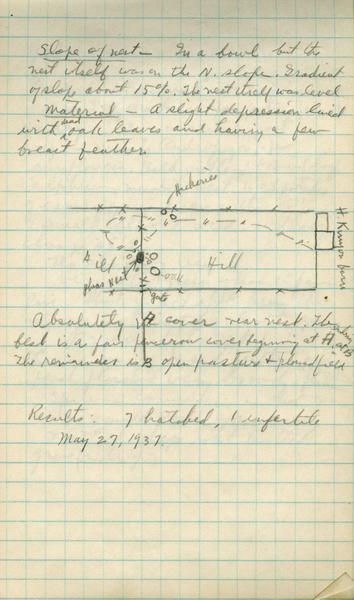 Slope of nest - In a bowl but the
nest itself was on the N. slope. Gradient
of slope about 15%. The nest itself was level
Material - A slight depression lined
with dead oak leaves and having a few
breast feather
Hackories
H Kinyon barn
Hill
Hill
phea nest
gate
Absolutely A cover near nest. The
best is a fair fencerow cover beginning at A at B
The remainder is B open pasture & plowed field
Results: 7 hatched, 1 infertile
May 27, 1937.